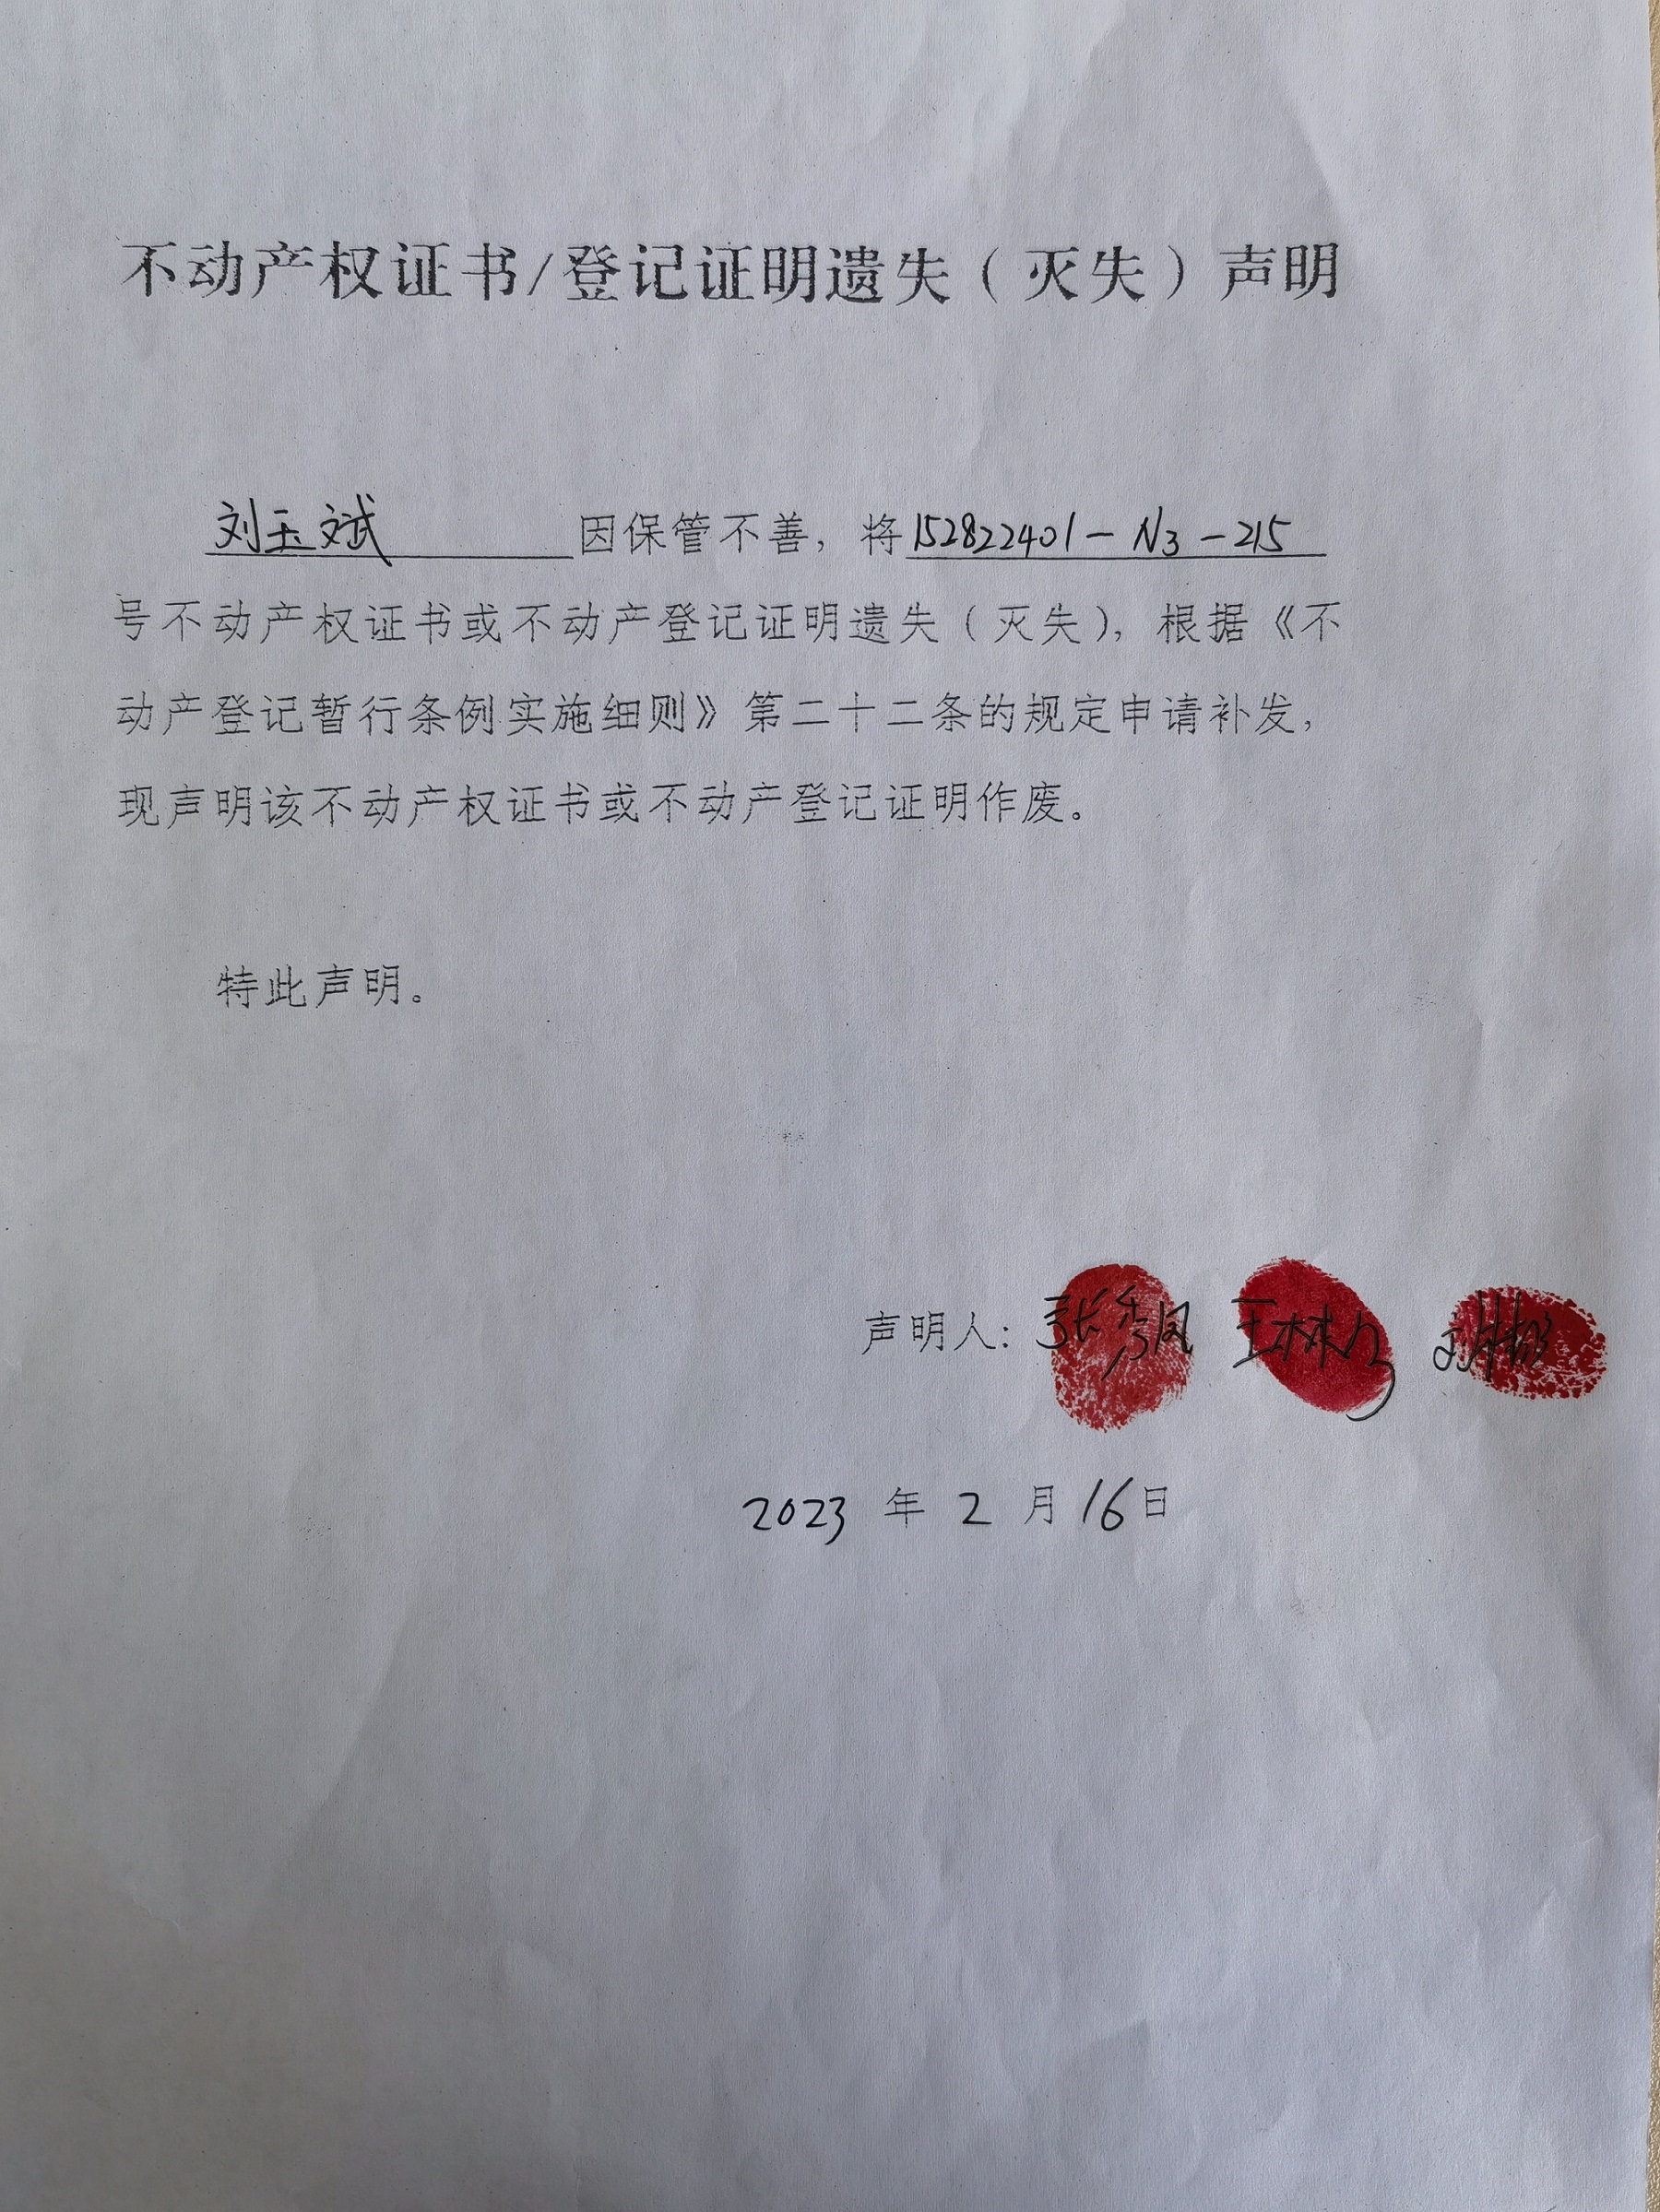 不动产权证书/登记证明遗失（灭失）声明
刘玉斌因保管不善，将152822401-N3-215
号不动产权证书或不动产登记证明遗失（灭失），根据《不
动产登记暂行条例实施细则》第二十二条的规定申请补发，
现声明该不动产权证书或不动产登记证明作废。
特此声明。
声明人：张秀凤
2023 年 2 月 16日